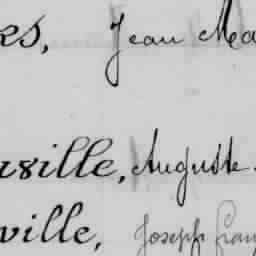 es, Jean Ma
rville, Auguste
ville, Joseph Fran